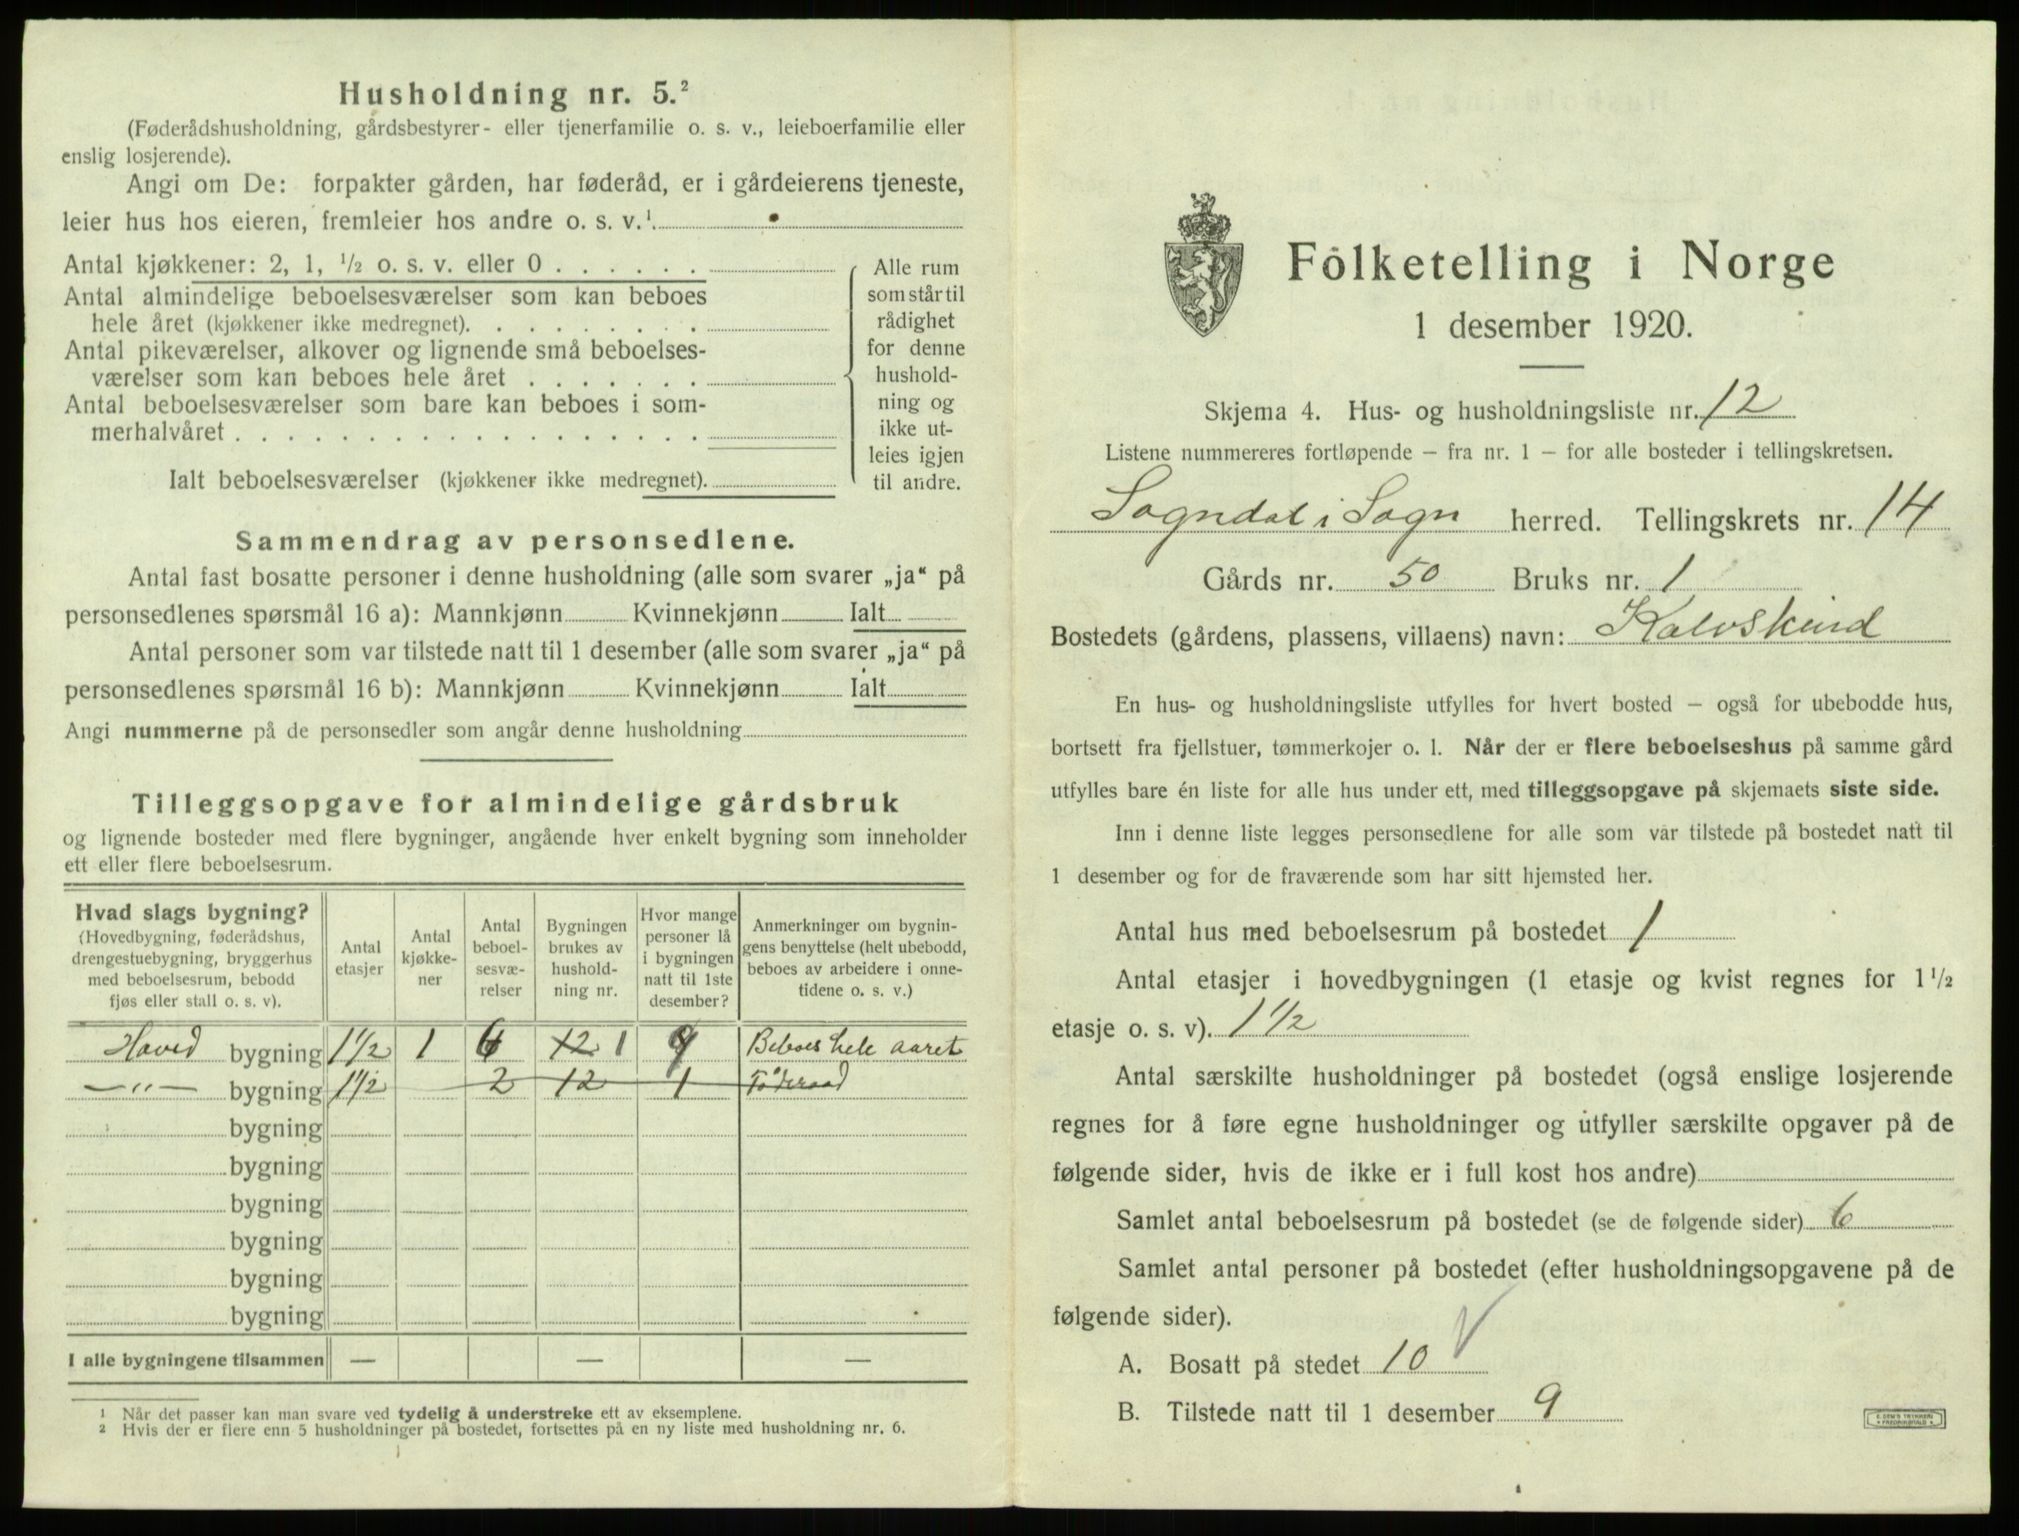 Husholdning nr. 5.²
(Føderådshusholdning, gårdsbestyrer- eller tjenerfamilie o. s. v., leieboerfamilie eller
enslig losjerende).
Angi om De: forpakter gården, har føderåd, er i gårdeierens tjeneste,
leier hus hos eieren, fremleier hos andre o. s. v.¹
Antal kjøkkener: 2, 1, ½ o. s. v. eller 0 . . . . . .
Antal almindelige beboelsesværelser som kan beboes
hele året (kjøkkener ikke medregnet). . . . . . . . .
Antal pikeværelser, alkover og lignende små beboelses-
værelser som kan beboes hele året . . . . . . .
Antal beboelsesværelser som bare kan beboes i som-
merhalvåret . . . . . . . . . . . . . . . . . .
Ialt beboelsesværelser (kjøkkener ikke medregnet).
Alle rum
som står til
rådighet
for denne
hushold-
ning og
ikke ut-
leies igjen
til andre.
Sammendrag av personsedlene.
Antal fast bosatte personer i denne husholdning (alle som svarer „ja“ på
personsedlenes spørsmål 16 a): Mannkjønn Kvinnekjønn Ialt
Antal personer som var tilstede natt til 1 desember (alle som svarer „ja“ på
personsedlenes spørsmål 16 b): Mannkjønn Kvinnekjønn Ialt
Angi nummerne på de personsedler som angår denne husholdning
Tilleggsopgave for almindelige gårdsbruk
og lignende bosteder med flere bygninger, angående hver enkelt bygning som inneholder
ett eller flere beboelsesrum.
Hvad slags bygning?
(Hovedbygning, føderådshus,
drengestuebygning, bryggerhus
med beboelsesrum, bebodd
fjøs eller stall o. s. v).
Antal
etasjer
Antal
kjøkke-
ner
Antal
beboel-
sesvæ-
relser
Bygningen
brukes av
hushold-
ning nr.
Hvor mange
personer lå
i bygningen
natt til 1ste
desember?
Anmerkninger om bygnin-
gens benyttelse (helt ubebodd,
beboes av arbeidere i onne-
tidene o. s. v.)
Hoved bygning 1½ 1 6 12 1 9 Beboes hele aaret
—„— bygning 1½ 2 12 1 Føderaad
bygning
bygning
bygning
bygning
bygning
bygning
I alle bygningene tilsammen — — —
¹ Når det passer kan man svare ved tydelig å understreke ett av eksemplene.
² Hvis der er flere enn 5 husholdninger på bostedet, fortsettes på en ny liste med husholdning nr. 6.
Folketelling i Norge
1 desember 1920.
Skjema 4. Hus- og husholdningsliste nr. 12
Listene nummereres fortløpende – fra nr. 1 – for alle bosteder i tellingskretsen.
Sogndal i Sogn herred. Tellingskrets nr. 14
Gårds nr. 50 Bruks nr. 1
Bostedets (gårdens, plassens, villaens) navn: Kalvskind
En hus- og husholdningsliste utfylles for hvert bosted – også for ubebodde hus,
bortsett fra fjellstuer, tømmerkojer o. l. Når der er flere beboelseshus på samme gård
utfylles bare én liste for alle hus under ett, med tilleggsopgave på skjemaets siste side.
Inn i denne liste legges personsedlene for alle som var tilstede på bostedet natt til
1 desember og for de fraværende som har sitt hjemsted her.
Antal hus med beboelsesrum på bostedet 1
Antal etasjer i hovedbygningen (1 etasje og kvist regnes for 1½
etasje o. s. v). 1½
Antal særskilte husholdninger på bostedet (også enslige losjerende
regnes for å føre egne husholdninger og utfyller særskilte opgaver på de
følgende sider, hvis de ikke er i full kost hos andre)
Samlet antal beboelsesrum på bostedet (se de følgende sider) 6
Samlet antal personer på bostedet (efter husholdningsopgavene på de
følgende sider).
A. Bosatt på stedet 10
B. Tilstede natt til 1 desember 9